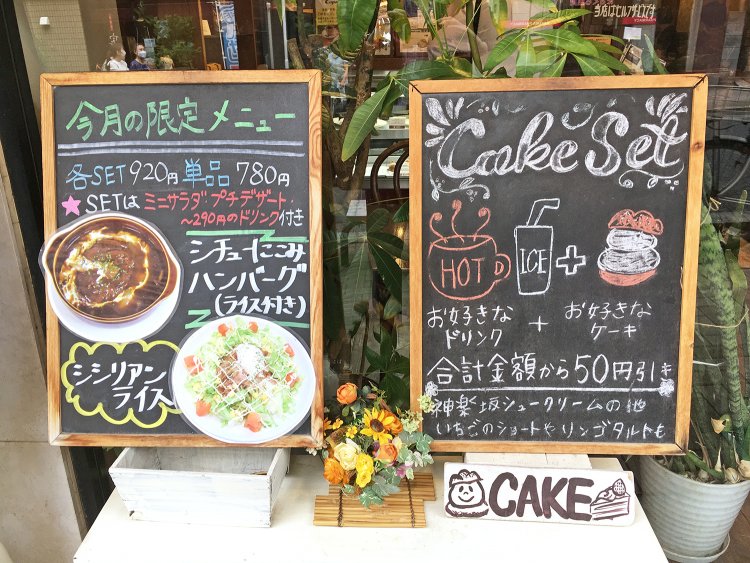 当店はセルフサービスです
今月の限定メニュー
各SET 920円 単品 780円
★ SETは ミニサラダ プチデザート・
～290円のドリンク付き
シチューにこみ
ハンバーグ
(ライス付き)
シシリアン
ライス
Cake Set
HOT
ICE
+
お好きな
ドリンク
+
お好きな
ケーキ
合計金額から50円引き
神楽坂シュークリームの他
いちごのショートやリンゴタルトも
CAKE